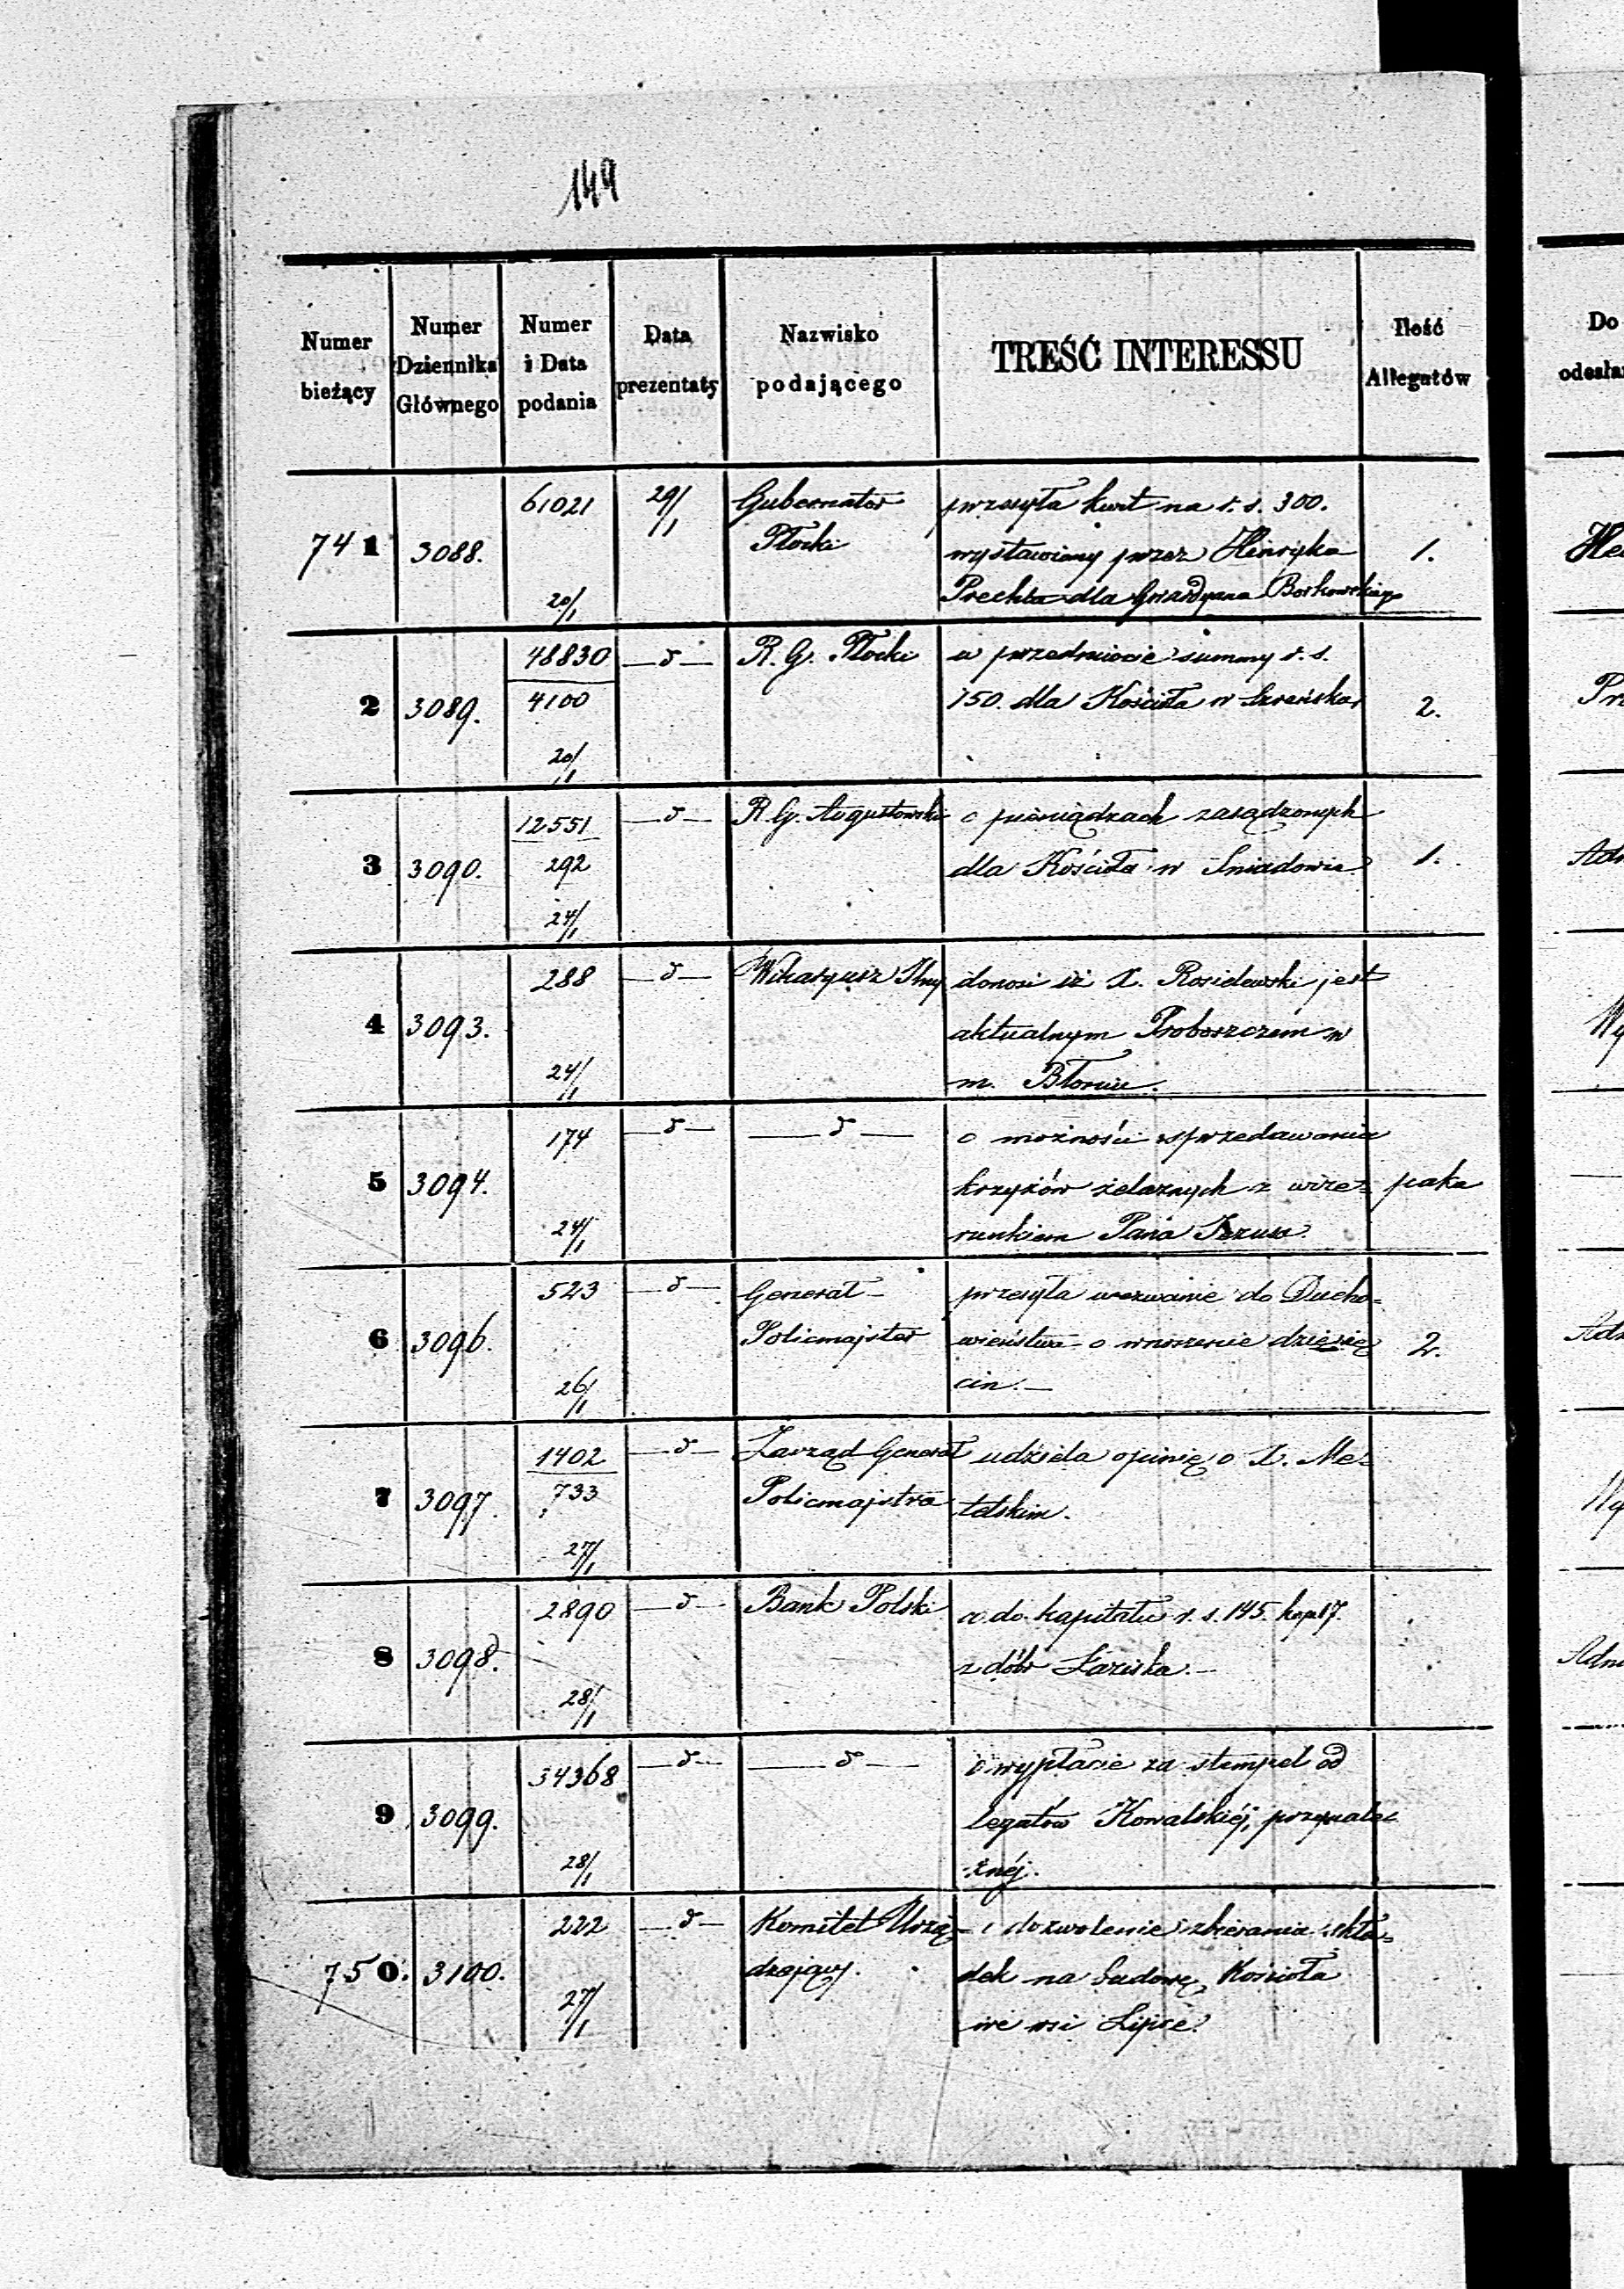 149
Numer bieżący | Numer Dziennika Głównego | Numer i Data podania | Data prezentaty | Nazwisko podającego | TREŚĆ INTERESSU | Ilość Allegatów
741 3088. 61021 20/1 29/1 Gubernator Płocki
przesyła kwit na r. s. 300.
wystawiony przez Henryka
Prechta dla Gwardyana Borkowskiego
1.
2 3089. 48830 4100 20/1 —d— R. G. Płocki
w przedmiocie summy r. s.
150. dla Kościoła w Szreńsku
2.
3 3090. 12551 292 24/1 —d— R. G. Augustowski
o pieniądzach zasądzonych
dla Kościoła w Sniadowie
1.
4 3093. 288 24/1 —d— Wikaryusz
donosi iż X. Rosielewski jest
aktualnym Proboszczem w
m. Błoniu.
5 3094. 174 24/1 —d— —d—
o możności sprzedawania
krzyżów żelaznych z wize=
runkiem Pana Jezusa.
paka
6 3096. 523 26/1 —d— Generał Policmajster
przesyła wezwanie do Ducho=
wieństwa o wnoszenie dziesię
cin.—
2.
7 3097. 1402 733 27/1 —d— Zarząd Generał Policmajstra
udziela opinię o X. Me=
telskim.
8 3098. 2890 28/1 —d— Bank Polski
do kapitału r. s. 145. kop 17.
z dóbr Łaziska.—
9 3099. 34368 28/1 —d— —d—
o wypłacie za stempel od
legatów Kowalskiéj, przynale=
żnéj.
750. 3100. 222 27/1 —d— Komitet Urzą=
dzający.
o dozwolenie zbierania skła=
dek na budowę Kościoła
we wsi Lipie.
Do